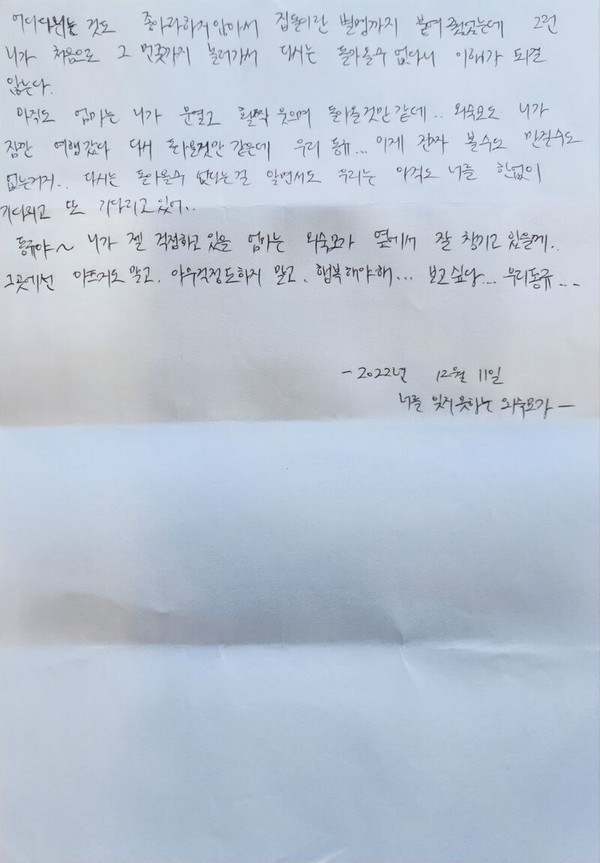 어디다니는 것도 좋아라하지 않아서 집돌이란 별명까지 붙여줬었는데 그런
니가 처음으로 그 먼곳까지 놀러가서 다시는 돌아올수 없다니 이해가 되질
않는다.
아직도 엄마는 니가 문열고 활짝 웃으며 돌아올것만 같은데.. 외숙모도 니가
잠깐 여행갔다 다시 돌아올것만 같은데 우리 동규... 이제 진짜 볼수도 만질수도
없는거지.. 다시는 돌아올수 없다는걸 알면서도 우리는 아직도 너를 한없이
기다리고 또 기다리고있어..
동규야~ 니가 젤 걱정하고 있을 엄마는 외숙모가 옆에서 잘 챙기고 있을께.
그곳에선 아프지도 말고, 아무걱정도하지 말고, 행복해야해... 보고싶당... 우리동규...
- 2022년 12월 11일
너를 잊지못하는 외숙모가 -